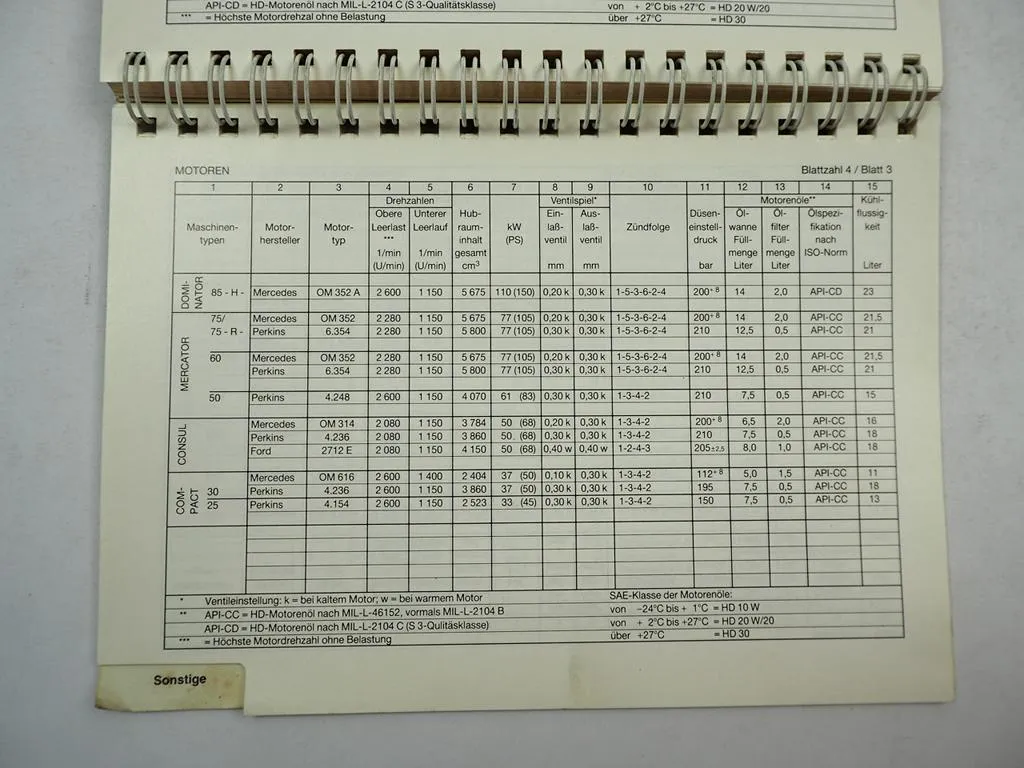 API-CD = HD-Motorenöl nach MIL-L-2104 C (S 3-Qualitätsklasse) von + 2°C bis +27°C = HD 20 W/20
*** = Höchste Motordrehzahl ohne Belastung über +27°C = HD 30
MOTOREN Blattzahl 4 / Blatt 3
1 2 3 4 5 6 7 8 9 10 11 12 13 14 15
Drehzahlen Ventilspiel* Motorenöle** Kühl-
Obere Unterer Hub- Ein- Aus- Düsen- Öl- Öl- Ölspezi- flussig-
Maschinen- Motor- Motor- Leerlast Leerlauf raum- kW laß- laß- Zündfolge einstell- wanne filter fikation keit
typen hersteller typ *** inhalt (PS) ventil ventil druck Füll- Füll- nach
1/min 1/min gesamt menge menge ISO-Norm
(U/min) (U/min) cm³ mm mm bar Liter Liter Liter
DOMI-
NATOR
85 - H - Mercedes OM 352 A 2 600 1 150 5 675 110 (150) 0,20 k 0,30 k 1-5-3-6-2-4 200+ 8 14 2,0 API-CD 23
MERCATOR
75/ Mercedes OM 352 2 280 1 150 5 675 77 (105) 0,20 k 0,30 k 1-5-3-6-2-4 200+ 8 14 2,0 API-CC 21,5
75 - R - Perkins 6.354 2 280 1 150 5 800 77 (105) 0,30 k 0,30 k 1-5-3-6-2-4 210 12,5 0,5 API-CC 21
60 Mercedes OM 352 2 280 1 150 5 675 77 (105) 0,20 k 0,30 k 1-5-3-6-2-4 200+ 8 14 2,0 API-CC 21,5
Perkins 6.354 2 280 1 150 5 800 77 (105) 0,30 k 0,30 k 1-5-3-6-2-4 210 12,5 0,5 API-CC 21
50 Perkins 4.248 2 600 1 150 4 070 61 (83) 0,30 k 0,30 k 1-3-4-2 210 7,5 0,5 API-CC 15
CONSUL
Mercedes OM 314 2 080 1 150 3 784 50 (68) 0,20 k 0,30 k 1-3-4-2 200+ 8 6,5 2,0 API-CC 16
Perkins 4.236 2 080 1 150 3 860 50 (68) 0,30 k 0,30 k 1-3-4-2 210 7,5 0,5 API-CC 18
Ford 2712 E 2 080 1 150 4 150 50 (68) 0,40 w 0,40 w 1-2-4-3 205±2,5 8,0 1,0 API-CC 18
COM-
PACT
Mercedes OM 616 2 600 1 400 2 404 37 (50) 0,10 k 0,30 k 1-3-4-2 112+ 8 5,0 1,5 API-CC 11
30 Perkins 4.236 2 600 1 150 3 860 37 (50) 0,30 k 0,30 k 1-3-4-2 195 7,5 0,5 API-CC 18
25 Perkins 4.154 2 600 1 150 2 523 33 (45) 0,30 k 0,30 k 1-3-4-2 150 7,5 0,5 API-CC 13
* Ventileinstellung: k = bei kaltem Motor; w = bei warmem Motor SAE-Klasse der Motorenöle:
** API-CC = HD-Motorenöl nach MIL-L-46152, vormals MIL-L-2104 B von −24°C bis + 1°C = HD 10 W
API-CD = HD-Motorenöl nach MIL-L-2104 C (S 3-Qulitätsklasse) von + 2°C bis +27°C = HD 20 W/20
*** = Höchste Motordrehzahl ohne Belastung über +27°C = HD 30
Sonstige